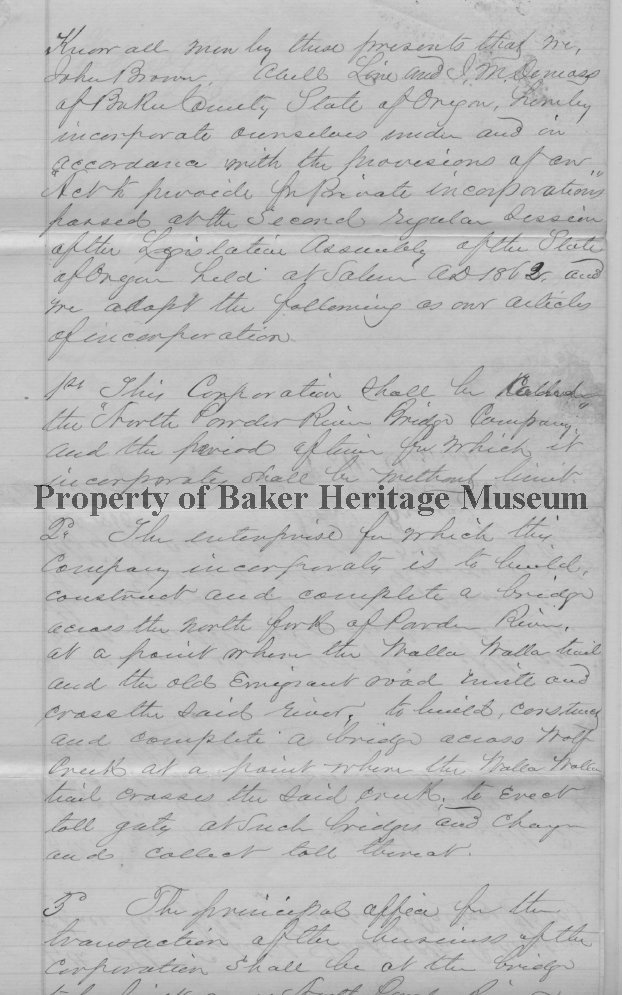 Know all men by these presents that we,
John Brown, Line and J. M.
of Baker County State of Oregon, hereby
incorporate ourselves under and in
accordance with the provisions of an
"Act to provide for Private incorporations"
passed at the Second regular Session
of the Legislative Assembly of the State
of Oregon held at Salem AD 1862, and
we adopt the following as our articles
of incorporation.
1st This Corporation shall be Called
the "North Powder River Bridge Company,"
and the period of time for which it
incorporates shall be without limit.
Property of Baker Heritage Museum
2d The enterprise for which this
Company incorporates is to build,
construct and complete a bridge
across the North fork of Powder River,
at a point where the Walla Walla trail
and the old Emigrant road unite and
cross the said river, to build, construct
and complete a bridge across Wolf
Creek at a point where the Walla Walla
trail crosses the said creek, to erect
toll gates at such bridges and charge
and collect toll thereat.
3d The principal office for the
transaction of the business of the
Corporation shall be at the bridge